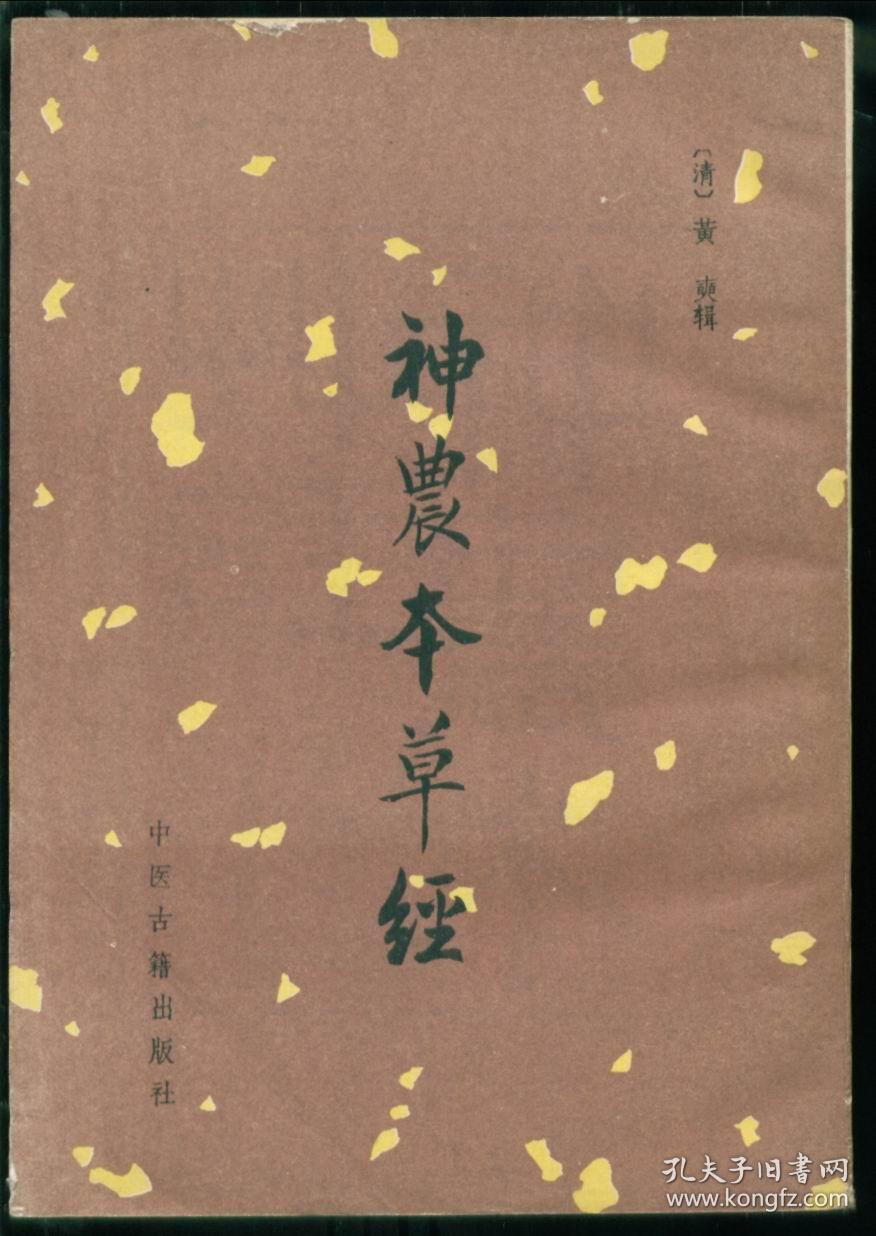 〔清〕黄 奭辑
神農本草經
中医古籍出版社
孔夫子旧書网
www.kongfz.com